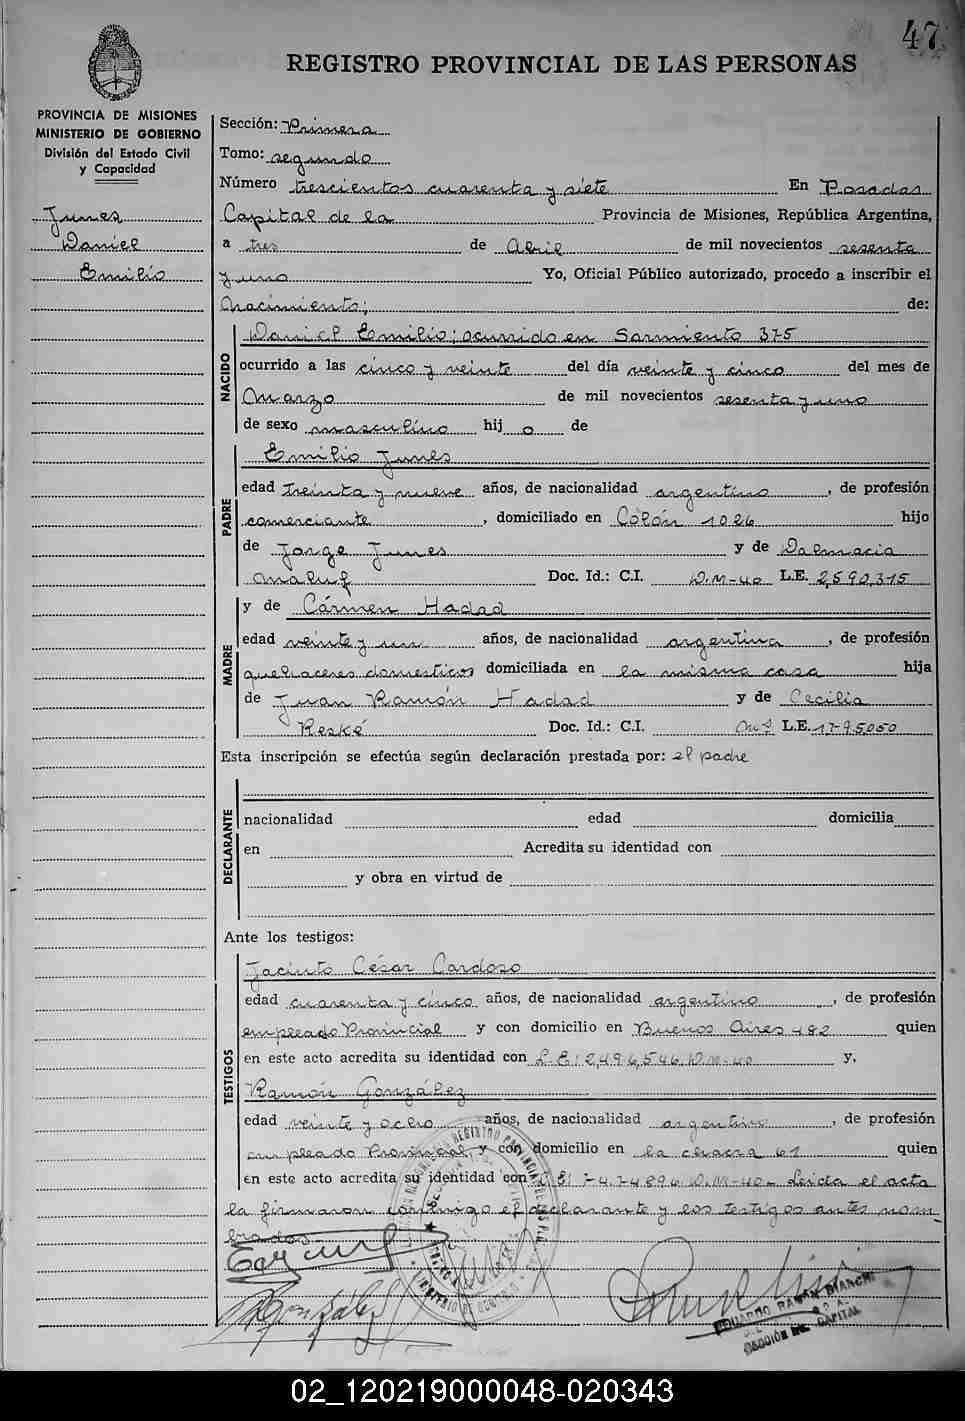 47
REGISTRO PROVINCIAL DE LAS PERSONAS
PROVINCIA DE MISIONES
MINISTERIO DE GOBIERNO
División del Estado Civil
y Capacidad
Junes
Daniel
Emilio
Sección: Primera
Tomo: segundo
Número trescientos cuarenta y siete En Posadas
Capital de la Provincia de Misiones, República Argentina,
a tres de Abril de mil novecientos sesenta
y uno Yo, Oficial Público autorizado, procedo a inscribir el
Nacimiento; de:
NACIDO
Daniel Emilio; ocurrido en Sarmiento 375
ocurrido a las cinco y veinte del día veinte y cinco del mes de
Marzo de mil novecientos sesenta y uno
de sexo masculino hij o de
Emilio Junes
PADRE
edad treinta y nueve años, de nacionalidad argentino, de profesión
comerciante, domiciliado en Colón 1026 hijo
de Jorge Junes y de Dalmacia
Maluf Doc. Id.: C.I. D.M-40 L.E. 2,590,315
y de Cármen Hadad
MADRE
edad veinte y un años, de nacionalidad argentina, de profesión
quehaceres domesticos domiciliada en la misma casa hija
de Juan Ramón Hadad y de Cecilia
Reské Doc. Id.: C.I. L.E.
Esta inscripción se efectúa según declaración prestada por: el padre
DECLARANTE
nacionalidad edad domicilia
en Acredita su identidad con
y obra en virtud de
Ante los testigos:
TESTIGOS
Jacinto César Cardozo
edad cuarenta y cinco años, de nacionalidad argentino, de profesión
empleado Provincial y con domicilio en Buenos Aires 482 quien
en este acto acredita su identidad con L.E: 2,496,546. D.M-40 y,
Ramón González
edad veinte y ocho años, de nacionalidad argentino, de profesión
empleado Provincial y con domicilio en la chacra 61 quien
en este acto acredita su identidad con D.M-40- Leída el acta
la firmaron conmigo el declarante y los testigos antes nom-
brados.
EDUARDO RAMÓN BIANCHI
SECCIÓN CAPITAL
02_120219000048-020343